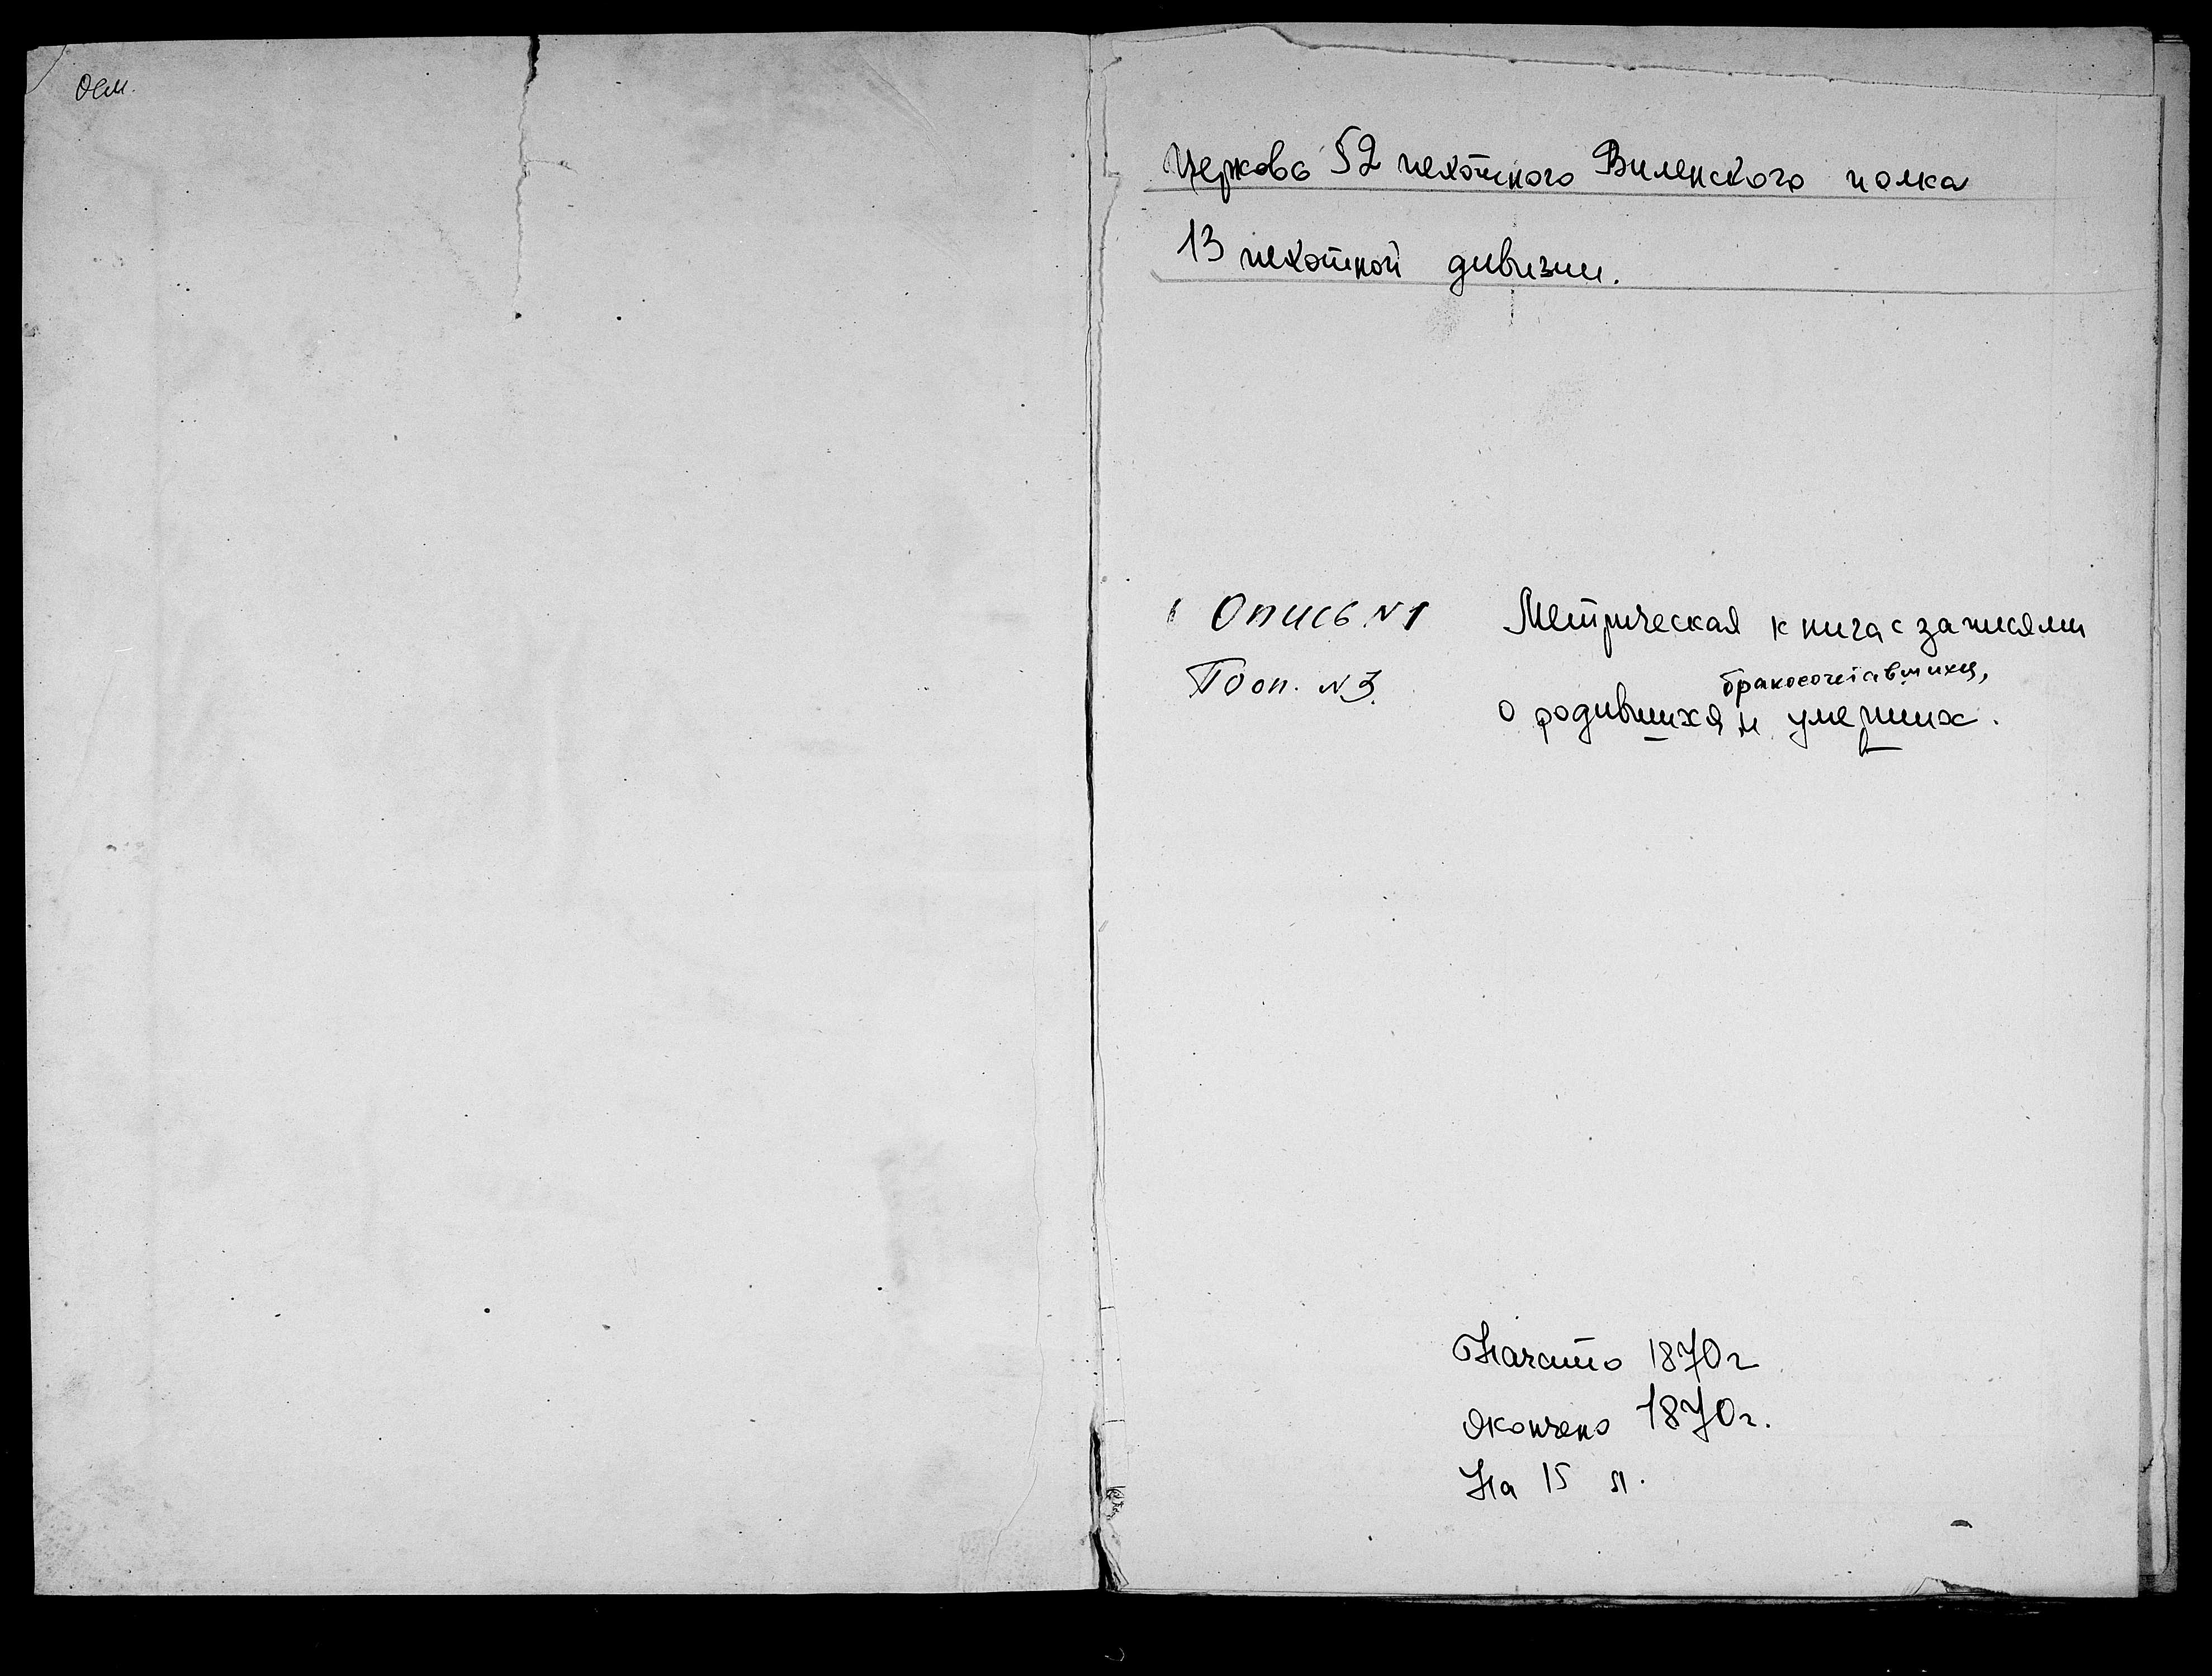 Церковь 52 пехотного Виленского полка
13 пехотной дивизии.
Опись №1
По оп. №3.
Метрическая книга с записями
бракосочетавшихся,
о родившихся и умерших.
Начато 1870 г
Окончено 1870 г.
На 15 л.